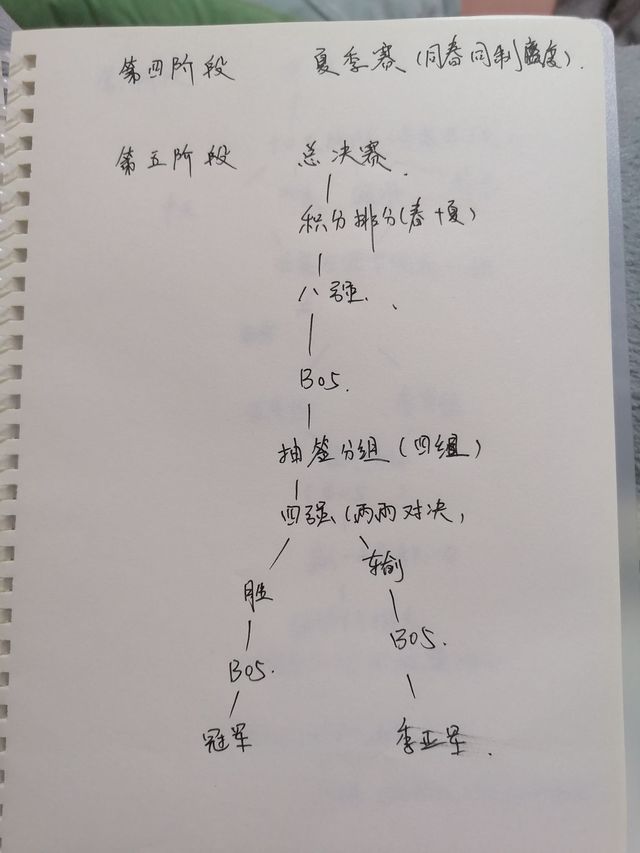 第四阶段 夏季赛(同春同制度).
第五阶段 总决赛.
积分排分(春+夏)
八强.
BO5.
抽签分组(四组)
四强(两两对决)
胜 输
BO5. BO5.
冠军 季亚军.